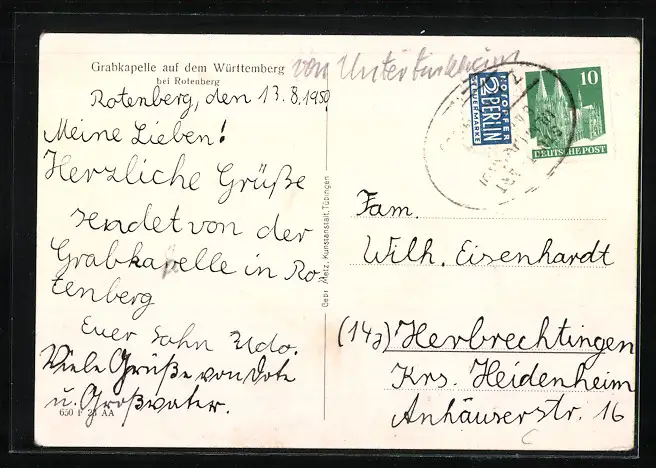 Grabkapelle auf dem Württemberg
bei Rotenberg
von Untertürkheim
Rotenberg, den 13.8.1950
Meine Lieben!
Herzliche Grüße
sendet von der
Grabkapelle in Ro-
tenberg
Euer Sohn Udo.
Viele Grüße von Dote
u. Großvater.
650 F 23 AA
Gebr. Metz, Kunstanstalt, Tübingen
NOTOPFER
2 BERLIN
STEUERMARKE
10
DEUTSCHE POST
Fam.
Wilh. Eisenhardt
(14a) Herbrechtingen
Krs. Heidenheim
Anhäuserstr. 16